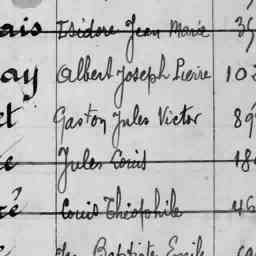 ais Isidore Jean Marie 39
ay Albert Joseph Pierre 102
et Gaston Jules Victor 89
Jules Louis 18
é Louis Théophile 46
Baptiste Emile